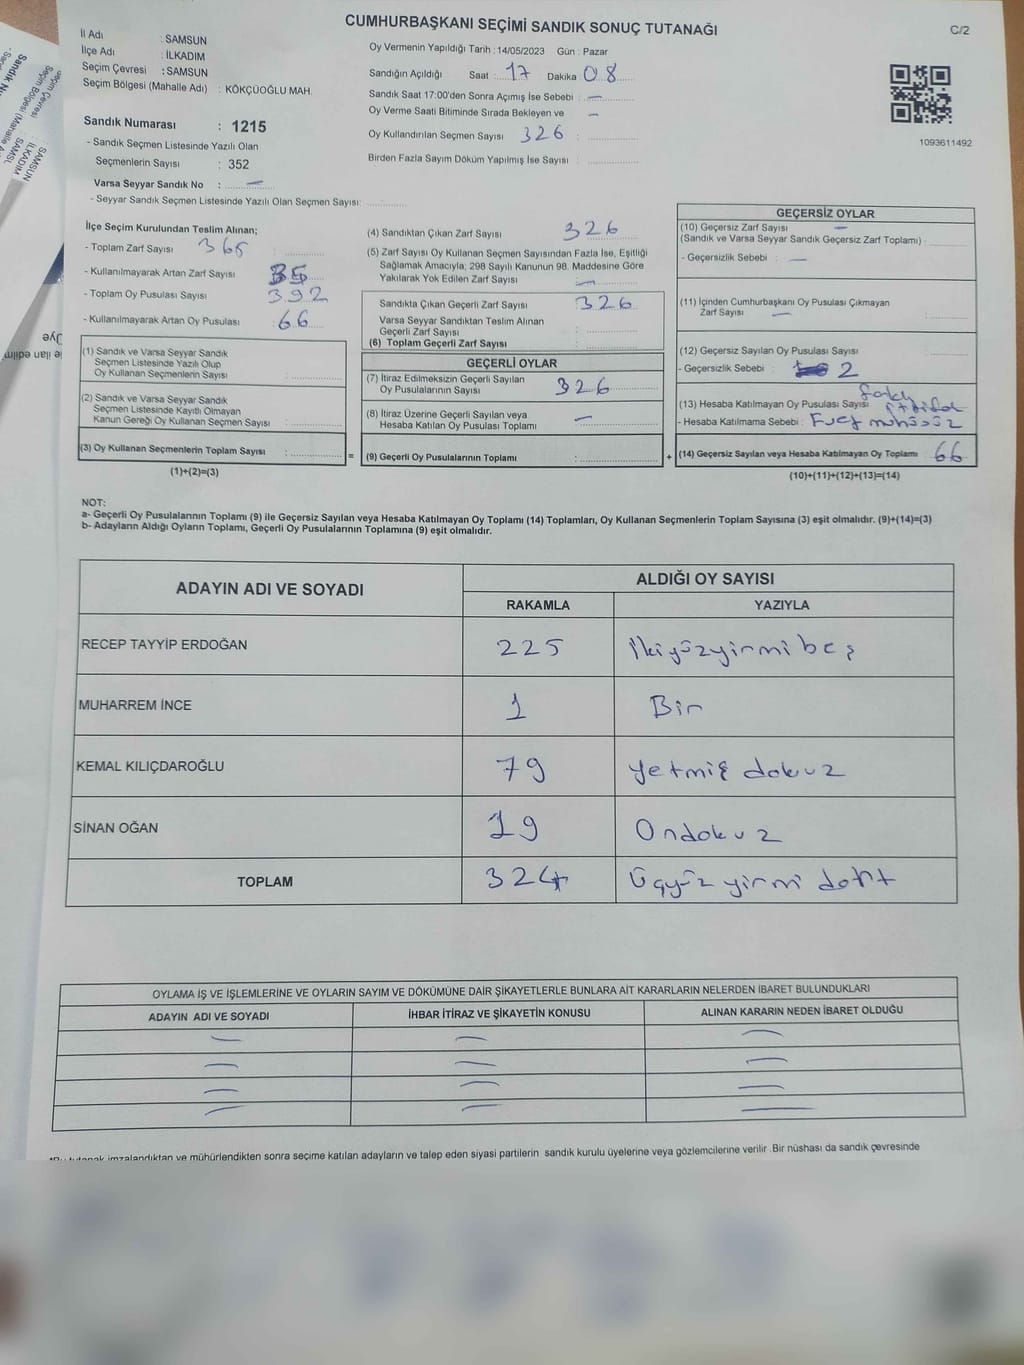 CUMHURBAŞKANI SEÇİMİ SANDIK SONUÇ TUTANAĞI
C/2
İl Adı : SAMSUN
İlçe Adı : İLKADIM
Seçim Çevresi : SAMSUN
Seçim Bölgesi (Mahalle Adı) : KÖKÇÜOĞLU MAH.
Sandık Numarası : 1215
- Sandık Seçmen Listesinde Yazılı Olan
Seçmenlerin Sayısı : 352
Varsa Seyyar Sandık No : —
- Seyyar Sandık Seçmen Listesinde Yazılı Olan Seçmen Sayısı:
Oy Vermenin Yapıldığı Tarih : 14/05/2023 Gün : Pazar
Sandığın Açıldığı Saat : 17 Dakika 08
Sandık Saat 17:00'den Sonra Açımış İse Sebebi : —
Oy Verme Saati Bitiminde Sırada Bekleyen ve —
Oy Kullandırılan Seçmen Sayısı 326
Birden Fazla Sayım Döküm Yapılmış İse Sayısı :
1093611492
İlçe Seçim Kurulundan Teslim Alınan;
- Toplam Zarf Sayısı 365
- Kullanılmayarak Artan Zarf Sayısı 35
- Toplam Oy Pusulası Sayısı 392
- Kullanılmayarak Artan Oy Pusulası : 66
(1) Sandık ve Varsa Seyyar Sandık
Seçmen Listesinde Yazılı Olup
Oy Kullanan Seçmenlerin Sayısı :
(2) Sandık ve Varsa Seyyar Sandık
Seçmen Listesinde Kayıtlı Olmayan
Kanun Gereği Oy Kullanan Seçmen Sayısı :
(3) Oy Kullanan Seçmenlerin Toplam Sayısı :
=
(1)+(2)=(3)
(4) Sandıktan Çıkan Zarf Sayısı 326
(5) Zarf Sayısı Oy Kullanan Seçmen Sayısından Fazla İse, Eşitliği
Sağlamak Amacıyla; 298 Sayılı Kanunun 98. Maddesine Göre
Yakılarak Yok Edilen Zarf Sayısı —
Sandıkta Çıkan Geçerli Zarf Sayısı 326
Varsa Seyyar Sandıktan Teslim Alınan
Geçerli Zarf Sayısı :
(6) Toplam Geçerli Zarf Sayısı :
GEÇERLİ OYLAR
(7) İtiraz Edilmeksizin Geçerli Sayılan
Oy Pusulasının Sayısı 326
(8) İtiraz Üzerine Geçerli Sayılan veya
Hesaba Katılan Oy Pusulası Toplamı —
(9) Geçerli Oy Pusulalarının Toplamı :
+
GEÇERSİZ OYLAR
(10) Geçersiz Zarf Sayısı —
(Sandık ve Varsa Seyyar Sandık Geçersiz Zarf Toplamı) :
- Geçersizlik Sebebi : —
(11) İçinden Cumhurbaşkanı Oy Pusulası Çıkmayan
Zarf Sayısı —
(12) Geçersiz Sayılan Oy Pusulası Sayısı
- Geçersizlik Sebebi : 2
(13) Hesaba Katılmayan Oy Pusulası Sayısı
- Hesaba Katılmama Sebebi :
(14) Geçersiz Sayılan veya Hesaba Katılmayan Oy Toplamı 66
(10)+(11)+(12)+(13)=(14)
NOT:
a- Geçerli Oy Pusulalarının Toplamı (9) ile Geçersiz Sayılan veya Hesaba Katılmayan Oy Toplamı (14) Toplamları, Oy Kullanan Seçmenlerin Toplam Sayısına (3) eşit olmalıdır. (9)+(14)=(3)
b- Adayların Aldığı Oyların Toplamı, Geçerli Oy Pusulalarının Toplamına (9) eşit olmalıdır.
ADAYIN ADI VE SOYADI
ALDIĞI OY SAYISI
RAKAMLA YAZIYLA
RECEP TAYYİP ERDOĞAN 225 İkiyüzyirmibeş
MUHARREM İNCE 1 Bir
KEMAL KILIÇDAROĞLU 79 yetmiş dokuz
SİNAN OĞAN 19 Ondokuz
TOPLAM 324 Üçyüz yirmi dört
OYLAMA İŞ VE İŞLEMLERİNE VE OYLARIN SAYIM VE DÖKÜMÜNE DAİR ŞİKAYETLERLE BUNLARA AİT KARARLARIN NELERDEN İBARET BULUNDUKLARI
ADAYIN ADI VE SOYADI İHBAR İTİRAZ VE ŞİKAYETİN KONUSU ALINAN KARARIN NEDEN İBARET OLDUĞU
— — —
— — —
— — —
— — —
*Bu tutanak imzalandıktan ve mühürlendikten sonra seçime katılan adayların ve talep eden siyasi partilerin sandık kurulu üyelerine veya gözlemcilerine verilir. Bir nüshası da sandık çevresinde